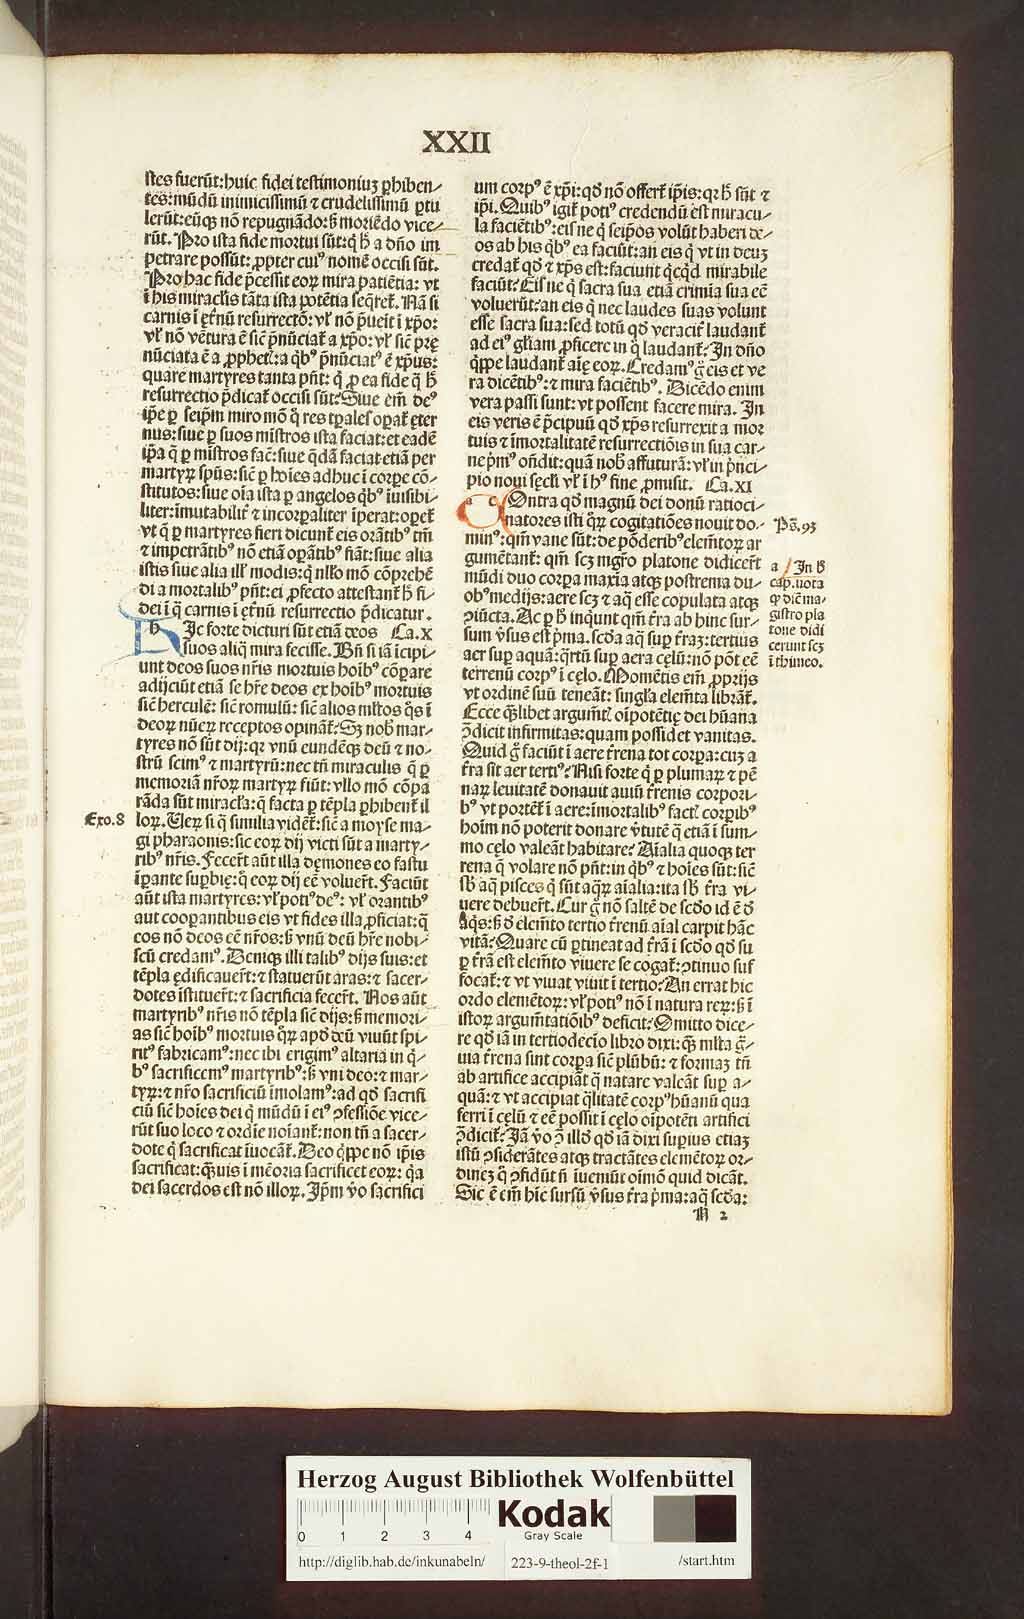 XXII
stes fuerūt: huic fidei testimoniuꝫ ꝑhiben⸗
tes: mūdū inimicissimū ⁊ crudelissimū ꝑtu
lerūt: eūqꝫ nō repugnādo: sꝫ moriēdo vice⸗
rūt. Pro ista fide mortui sūt: q̄ h̄ a dn̄o im
petrare possūt: ꝓpter cuiꝰ nomē occisi sūt.
Pro hac fide p̄cessit eoꝝ mira patiētia: vt
ī his miracl̓is tāta ista potētia seq̄ret̄. Nā si
carnis ī et̓nū resurrectō: vl̓ nō p̄ueit ī xp̄o:
vl̓ nō vētura ē sic̄ p̄nūciat̄ a xp̄o: vl̓ sic̄ prę
nūciata ē a ꝓphet̓: a qͥbꝰ p̄nūciatꝰ ē xp̄us:
quare martyres tanta pn̄t: qͥ ꝓ ea fide q̄ h̄
resurrectio p̄dicat̄ occisi sūt? Siue em̄ deꝰ
ip̄e ꝑ seip̄m miro mō q̊ res tp̄ales oꝑat̄ ęter
nus: siue ꝑ suos mīstros ista faciat: et eadē
ip̄a q̄ ꝑ mīstros fac̄: siue q̄dā faciat etiā per
martyꝝ spūs: sic̄ ꝑ hoīes adhuc ī corꝑe cō⸗
stitutos: siue oīa ista ꝑ angelos qͥbꝰ īuisibi⸗
liter: īmutabilit̄ ⁊ incorꝑaliter īperat: oꝑet̄
vt q̄ ꝑ martyres fieri dicunt̄ eis orātibꝰ tm̄
⁊ impetrātibꝰ nō etiā oꝑātibꝰ fiāt: siue alia
istis siue alia ill̓ modis: q̄ nll̓o mō cōprehē
di a mortalibꝰ pn̄t: ei ꝓfecto attestant̄ h̄ fi⸗
dei ī q̄ carnis ī et̓nū resurrectio p̄dicatur.
h Ic forte dicturi sūt etiā deos Ca.X
suos aliq̄ mira fecisse. Bn̄ si iā īcipi⸗
unt deos suos nr̄is mortuis hoībꝰ cōpare
adijciūt etiā se hr̄e deos ex hoībꝰ mortuis
sic̄ herculē: sic̄ romulū: sic̄ alios ml̓tos q̊s ī
deoꝝ nūeꝝ receptos opināt̄: Sꝫ nob̄ mar⸗
tyres nō sūt dij: qꝛ vnū eundēqꝫ deū ⁊ no⸗
strū scimꝰ ⁊ martyrū: nec tn̄ miraculis q̄ ꝑ
memoriā nr̄oꝝ martyꝝ fiūt: vllo mō cōpa
rāda sūt miracl̓a: q̄ facta ꝑ tēpla ꝑhibent̄ il
loꝝ. Veꝝ si q̄ similia vident̄: sic̄ a moyse ma⸗
gi pharaonis: sic eoꝝ dij victi sūt a marty⸗
ribꝰ nr̄is. Fecert̄ aūt illa dęmones eo fastu
īpante suꝑbię: q̊ eoꝝ dij eē voluert̄. Faciūt
aūt ista martyres: vl̓ potiꝰ deꝰ: vl̓ orantibꝰ
aut cooꝑantibus eis vt fides illa ꝓficiat: q̄
eos nō deos eē nr̄os: sꝫ vnū deū hr̄e nobi⸗
scū credamꝰ. Deniqꝫ illi talibꝰ dijs suis: et
tēpla ędificauert̄: ⁊ statuerūt aras: ⁊ sacer⸗
dotes īstituert̄: ⁊ sacrificia fecert̄. Nos aūt
martyribꝰ nr̄is nō tēpla sic̄ dijs: sꝫ memori⸗
as sic̄ hoībꝰ mortuis qͦꝝ apd̓ deū viuūt spi⸗
ritꝰ fabricamꝰ: nec ibi erigimꝰ altaria in q̄⸗
bꝰ sacrificemꝰ martyribꝰ: sꝫ vni deo: ⁊ mar⸗
tyꝝ: ⁊ nr̄o sacrificiū īmolamꝰ: ad qd̓ sacrifi
ciū sic̄ hoīes dei q̄ mūdū ī eiꝰ ꝯfessiōe vice⸗
rūt suo loco ⁊ ordīe noīant̄: non tn̄ a sacer⸗
dote q̄ sacrificat īuocāt̄. Deo q̄ppe nō ip̄is
sacrificat: qͣuis ī mēoria sacrificet eoꝝ: qͣa
dei sacerdos est nō illoꝝ. Ip̄m v̓o sacrifici
Exo.8
um corpꝰ ē xp̄i: qd̓ nō offert̄ ip̄is: qꝛ h̄ sūt ⁊
ip̄i. Quibꝰ igit̄ potiꝰ credendū est miracu⸗
la faciētibꝰ: eis ne q̄ seip̄os volūt haberi de⸗
os ab his qͥbꝰ ea faciūt: an eis q̄ vt in deuꝫ
credat̄ qd̓ ⁊ xp̄s est: faciunt qͥcqͥd mirabile
faciūt? Eis ne q̄ sacra sua etiā crimīa sua eē
voluerūt: an eis q̄ nec laudes suas volunt
esse sacra sua: sed totū qd̓ veracit̄ laudant̄
ad eiꝰ gl̓iam ꝓficere in q̊ laudant̄? In dn̄o
q̄ppe laudant̄ aīę eoꝝ. Credamꝰ g̊ eis et ve
ra dicētibꝰ: ⁊ mira faciētibꝰ. Dicēdo enim
vera passi sunt: vt possent facere mira. In
eis veris ē p̄cipuū qd̓ xp̄s resurrexit a mor
tuis ⁊ īmortalitatē resurrectiōis in sua car⸗
ne p̄mꝰ on̄dit: quā nob̄ affuturā: vl̓ in p̄nci⸗
pio noui sęcl̓i vl̓ ī hꝰ fine ꝓmisit. Ca.XI
a c Ontra qd̓ magnū dei donū ratioci⸗
natores isti qͦꝝ cogitatiōes nouit do⸗
minꝰ: qm̄ vane sūt: de pōderibꝰ elem̄toꝝ ar
gumētant̄: qm̄ scꝫ mgr̄o platone didicert̄
mūdi duo corꝑa maxīa atqꝫ postrema du⸗
obꝰ medijs: aere scꝫ ⁊ aq̄ esse copulata atqꝫ
ꝯiūcta. Ac ꝑ h̄ inqunt qm̄ t̓ra ab hinc sur⸗
sum v̓sus est p̄ma. scd̓a aq̄ suꝑ t̓raꝫ: tertius
aer suꝑ aquā: qͣrtū suꝑ aera cęlū: nō pōt eē
terrenū corpꝰ ī cęlo. Momētis em̄ ꝓprijs
vt ordinē suū teneāt: singl̓a elem̄ta librāt̄.
Ecce qͣlibet argum̄t̓ oīpotētię dei hūana
ꝯdicit infirmitas: quam possidet vanitas.
Quid g̊ faciūt ī aere t̓rena tot corꝑa: cuꝫ a
t̓ra sit aer tertiꝰ? Nisi forte q̄ ꝑ plumaꝝ ⁊ pē
naꝝ leuitatē donauit auiū t̓renis corpori⸗
bꝰ vt portēt̄ ī aere: īmortalibꝰ fact̓ corꝑibꝰ
hoīm nō poterit donare v̓tutē q̄ etiā ī sum⸗
mo cęlo valeāt habitare? Aīalia quoqꝫ ter
rena q̄ volare nō pn̄t: in qͥbꝰ ⁊ hoīes sūt: sic̄
sb̄ aq̄ pisces q̄ sūt aqͣꝝ aīalia: ita sb̄ t̓ra vi⸗
uere debuert̄. Cur g̊ nō saltē de scd̓o id ē d̓
aqͥs: sꝫ d̓ elem̄to tertio t̓renū aīal carpit hāc
vitā? Quare cū ꝑtineat ad t̓rā ī scd̓o qd̓ su
ꝑ t̓rā est elem̄to viuere se cogat̄: ꝯtinuo suf
focat̄: ⁊ vt viuat viuit ī tertio? An errat hic
ordo elemētoꝝ: vl̓ potiꝰ nō ī natura reꝝ: sꝫ ī
istoꝝ argum̄tatiōibꝰ deficit? Omitto dice⸗
re qd̓ iā in tertiodecīo libro dixi: qͣꝫ ml̓ta g̓⸗
uia t̓rena sint corꝑa sic̄ plūbū: ⁊ formaꝫ tn̄
ab artifice accipiāt q̄ natare valeāt suꝑ a⸗
quā: ⁊ vt accipiat q̄litatē corpꝰ hūanū qua
ferri ī cęlū ⁊ eē possit ī cęlo oīpotēti artifici
ꝯdicit̄? Iā v̓o ꝯ illd̓ qd̓ iā dixi suꝑius etiaꝫ
istū ꝯsiderātes atqꝫ tractātes elemētoꝝ or⸗
dineꝫ q̊ ꝯfidūt n̄ īueniūt oīmō quid dicāt.
Sic ē em̄ hīc sursū v̓sus t̓ra p̄ma: aq̄ scd̓a:
N 2
Pꝰ̄.93
a In h̄
cap. nota
ꝙ diē ma⸗
gistro pla
tone didi
cerunt scꝫ
ī thimeo.
Herzog August Bibliothek Wolfenbüttel
0 1 2 3 4
Kodak
Gray Scale
http://diglib.hab.de/inkunabeln/ 223-9-theol-2f-1 /start.htm